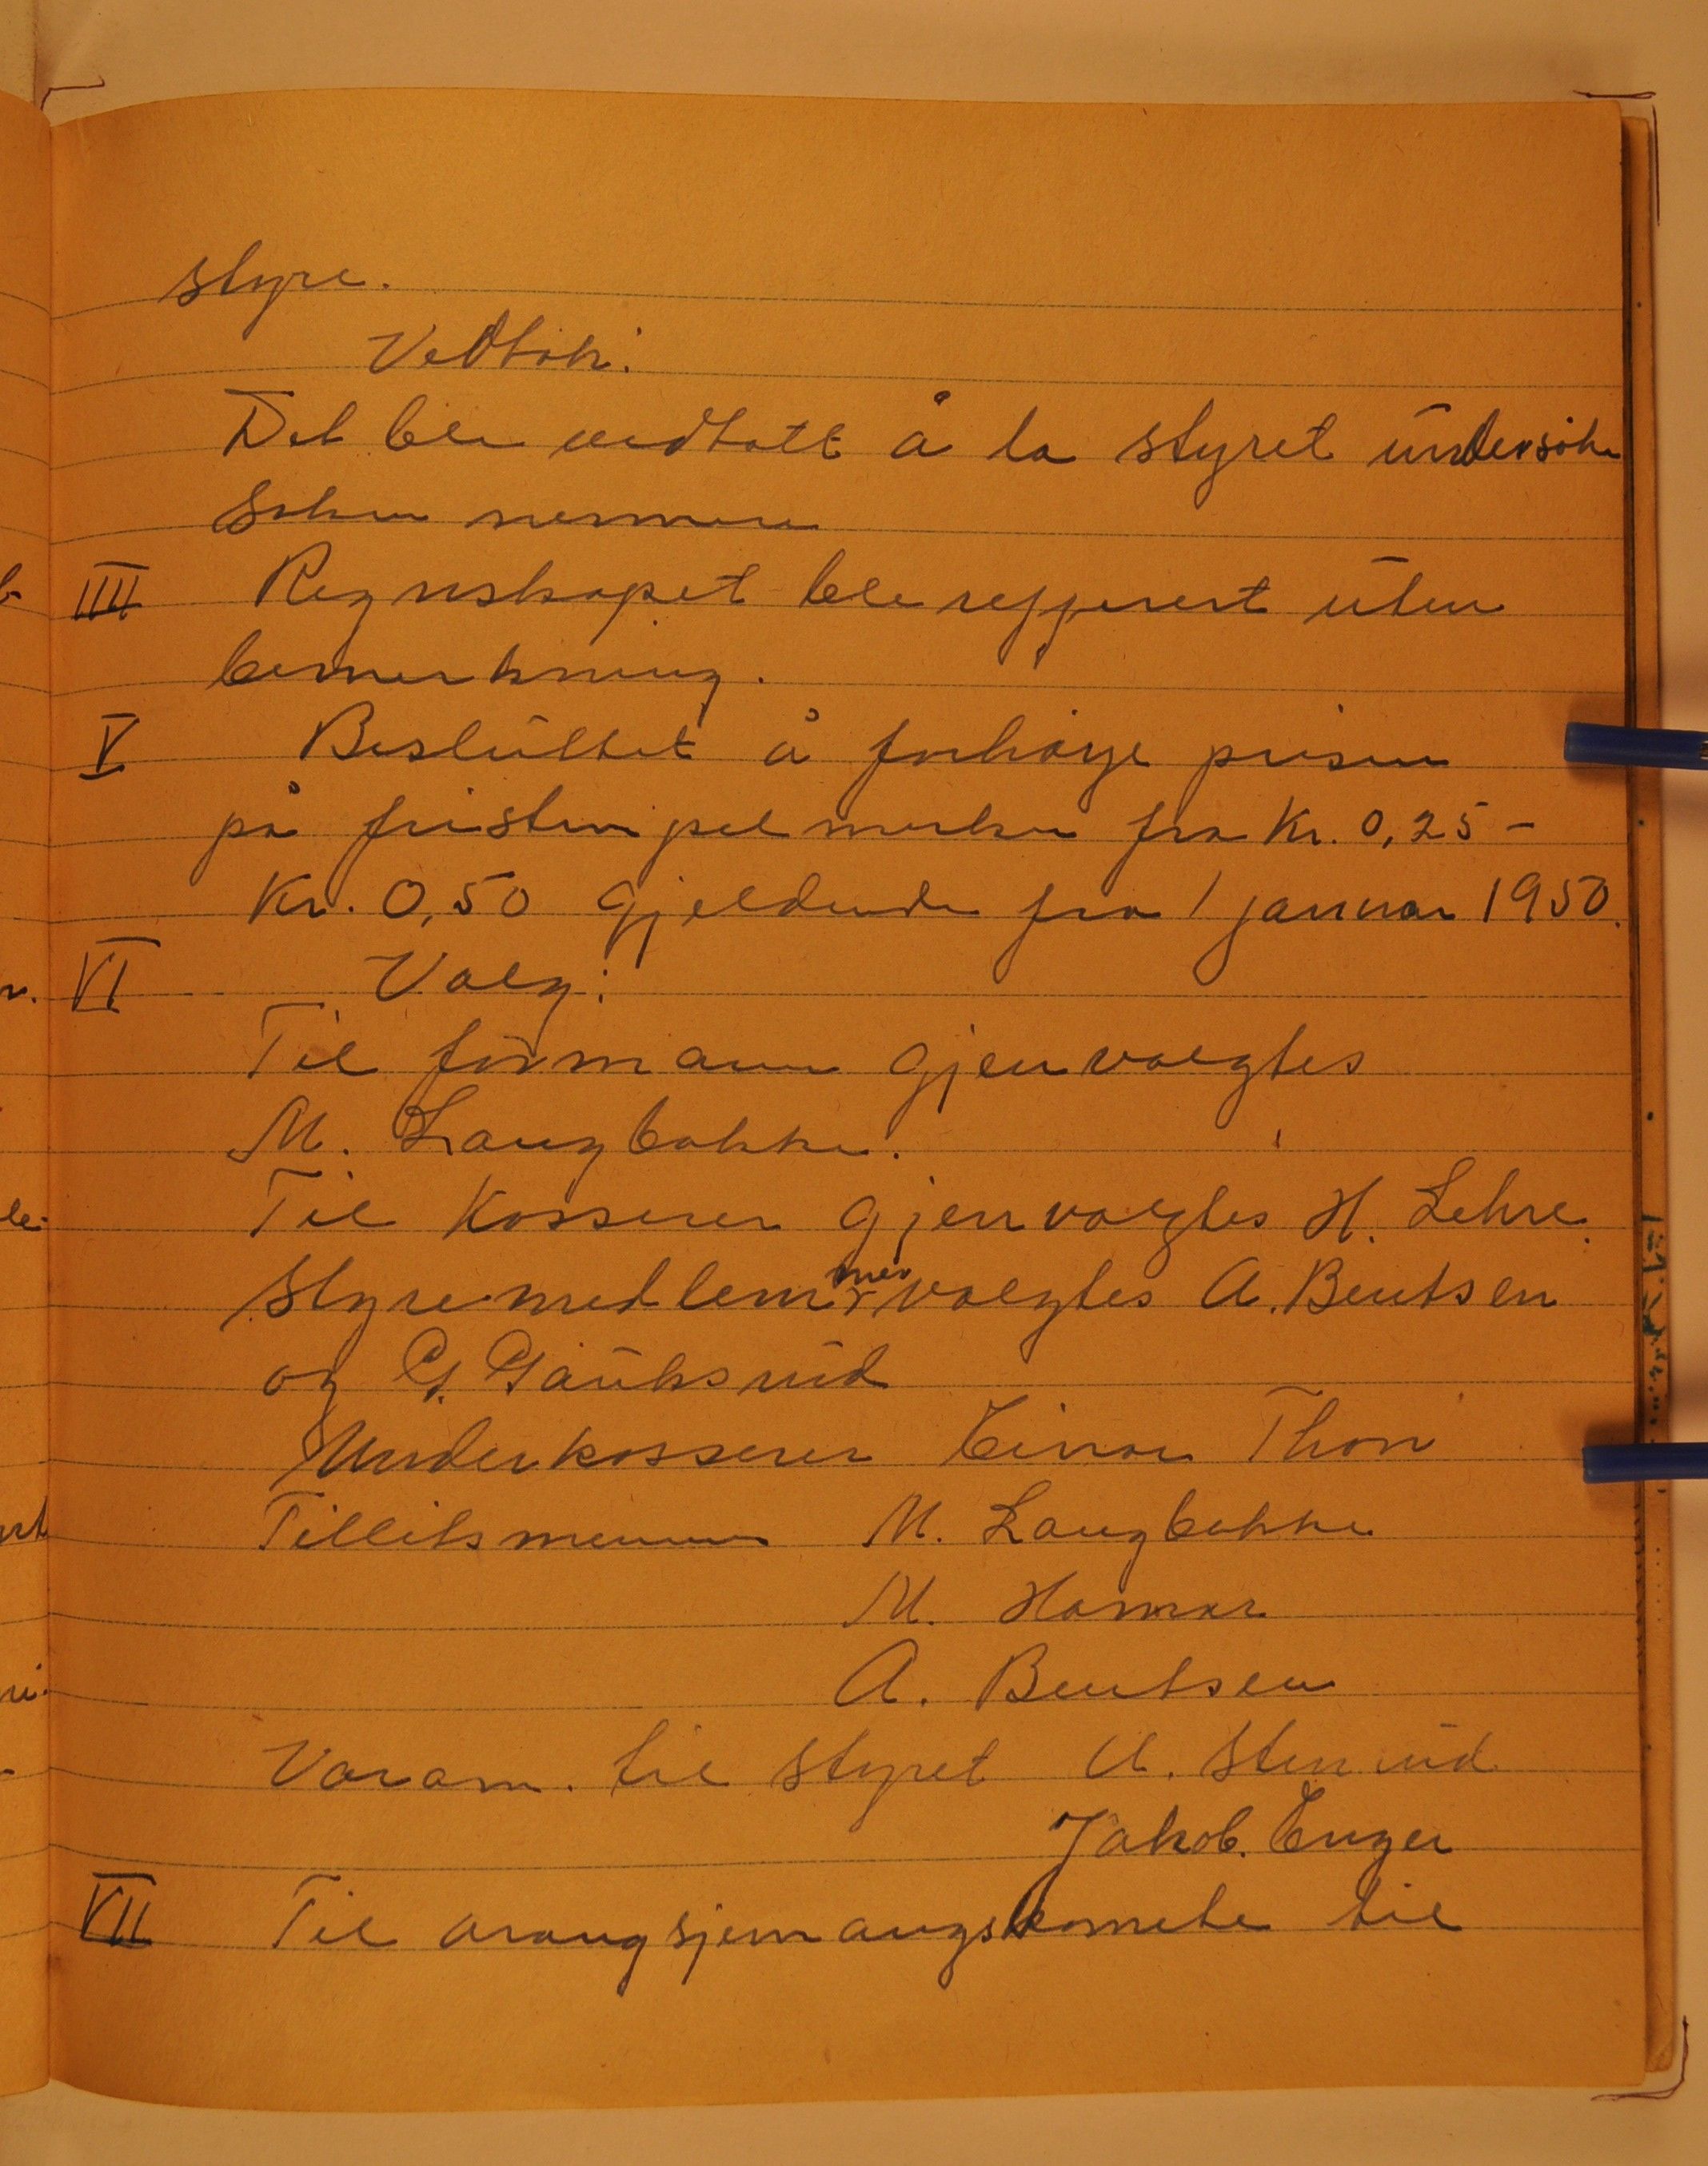 styre.
Vedtak:
Det ble vedtatt å la styret undersøke
saken nermere
IIII Regnskapet ble refferert uten
bemerkning.
V Besluttet å forhøye prisen
på fristempelmerker fra Kr. 0,25 -
Kr. 0,50 gjeldende fra 1 januar 1950.
VI Valg:
Til formann gjenvalgtes
M. Langbakke.
Til Kasserer gjenvalgtes H. Lehre.
Styremedlemmer valgtes A. Bentsen
og G. Gauksrud
Underkasserer Einar Thon
Tillitsmenn M. Langbakke
M. Hamar
A. Bentsen
Varam. til styret A. Stenrud
Jakob. Enger
VII Til arangsjemangskomete til